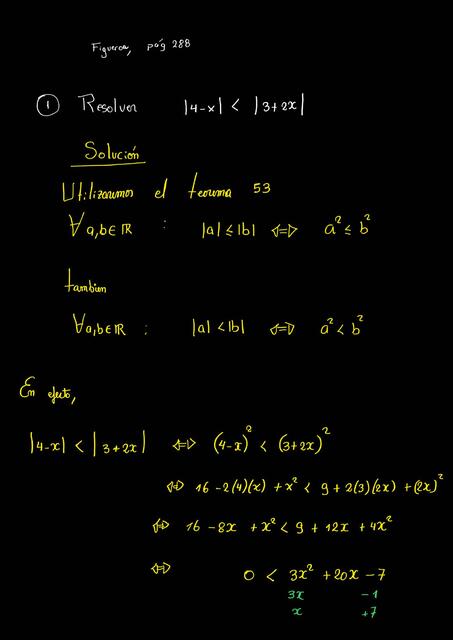 Figueroa, pág 288
① Resolver |4-x| < |3+2x|
Solución
Utilizaremos el teorema 53
∀a,b∈ℝ : |a| ≤ |b| ⇔ a² ≤ b²
tambien
∀a,b∈ℝ : |a| < |b| ⇔ a² < b²
En efecto,
|4-x| < |3+2x| ⇔ (4-x)² < (3+2x)²
⇔ 16 - 2(4)(x) + x² < 9 + 2(3)(2x) + (2x)²
⇔ 16 - 8x + x² < 9 + 12x + 4x²
⇔ 0 < 3x² + 20x - 7
3x -1
x +7